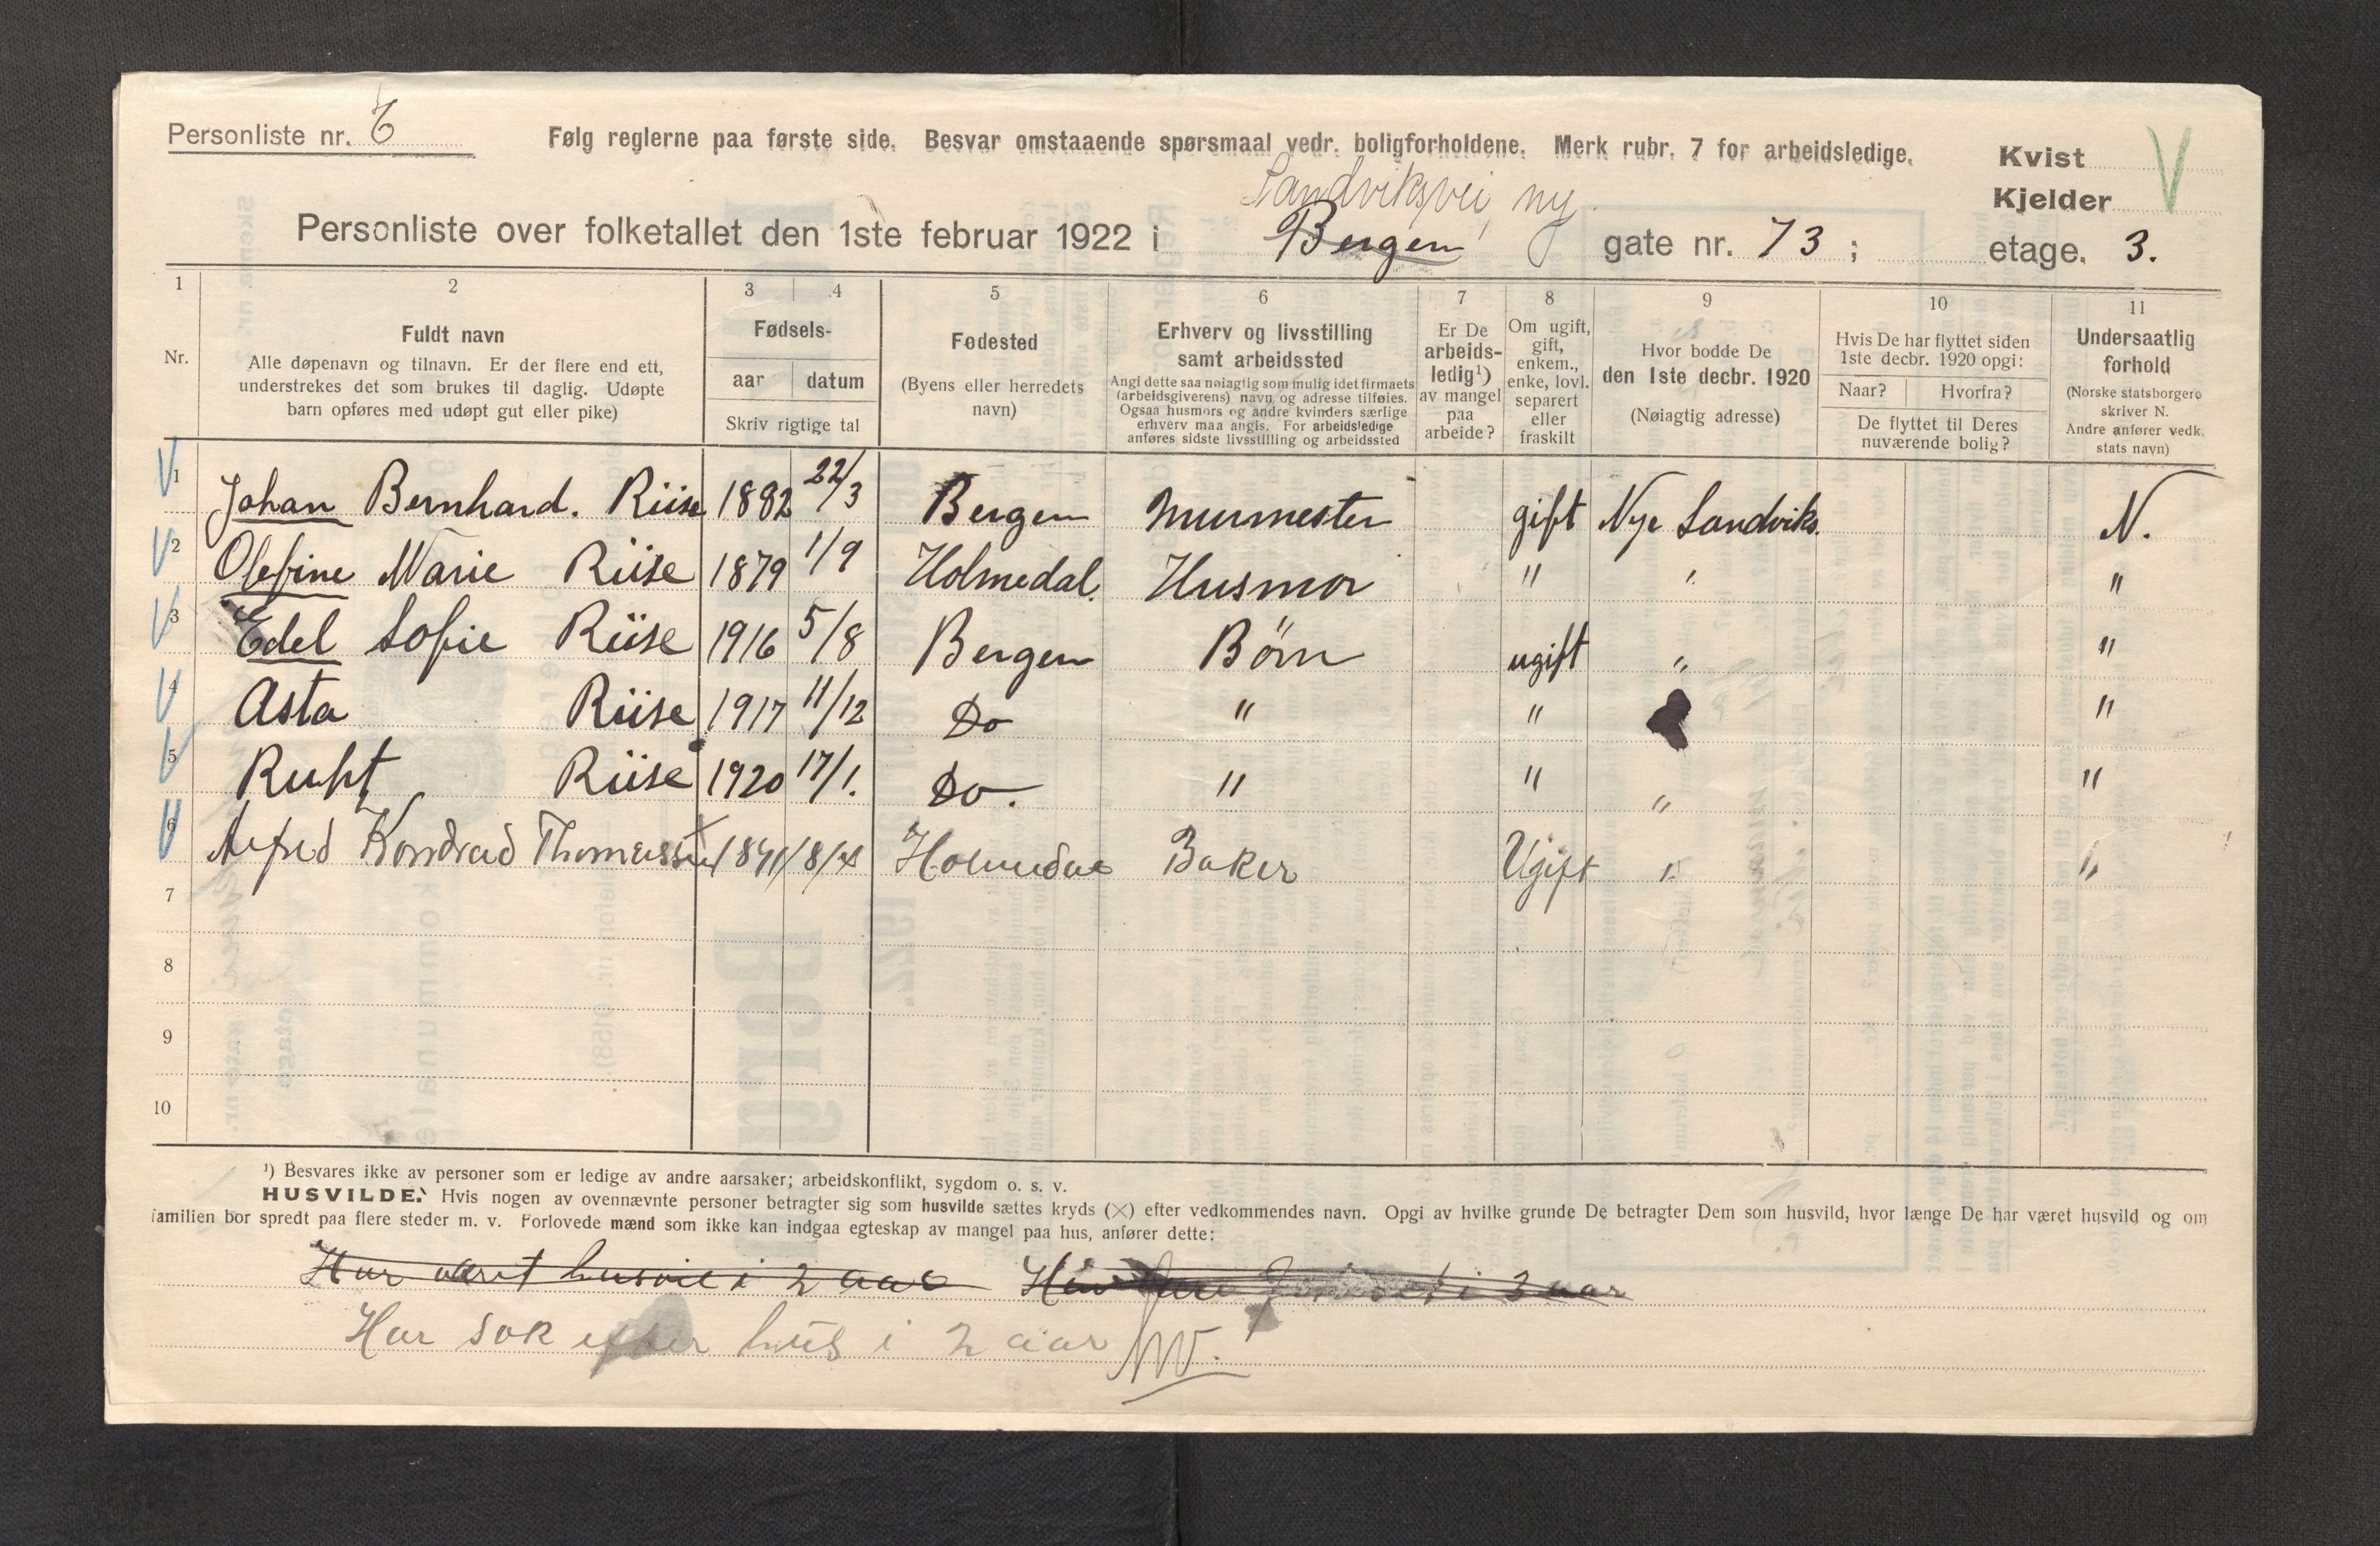 Personliste nr. 6
Følg reglerne paa første side. Besvar omstaaende spørsmaal vedr. boligforholdene. Merk rubr. 7 for arbeidsledige.
Kvist
Kjelder
Sandviksvei, ny
Personliste over folketallet den 1ste februar 1922 i Bergen gate nr. 73 ; etage. 3.
1 2 3 4 5 6 7 8 9 10 11
Nr.
Fuldt navn
Alle døpenavn og tilnavn. Er der flere end ett,
understrekes det som brukes til daglig. Udøpte
barn opføres med udøpt gut eller pike)
Fødsels-
aar datum
Skriv rigtige tal
Fødested
(Byens eller herredets
navn)
Erhverv og livsstilling
samt arbeidssted
Angi dette saa nøiagtig som mulig idet firmaets
(arbeidsgiverens) navn og adresse tilføies.
Ogsaa husmors og andre kvinders særlige
erhverv maa angis. For arbeidsledige
anføres sidste livsstilling og arbeidssted
Er De
arbeids-
ledig¹)
av mangel
paa
arbeide?
Om ugift,
gift,
enkem.,
enke, lovl.
separert
eller
fraskilt
Hvor bodde De
den 1ste decbr. 1920
(Nøiagtig adresse)
Hvis De har flyttet siden
1ste decbr. 1920 opgi:
Naar? Hvorfra?
De flyttet til Deres
nuværende bolig?
Undersaatlig
forhold
(Norske statsborgere
skriver N.
Andre anfører vedk.
stats navn)
1 Johan Bernhard. Riise 1882 22/3 Bergen Murmester gift Nye Sandviks. N.
2 Olefine Marie Riise 1879 1/9 Holmedal. Husmor " " "
3 Edel Sofie Riise 1916 5/8 Bergen Børn ugift " "
4 Asta Riise 1917 11/12 Do " " "
5 Ruht Riise 1920 17/1. Do. " " " "
6 Alfred Kondrad Thomassen Holmedal Baker Ugift " "
7
8
9
10
¹) Besvares ikke av personer som er ledige av andre aarsaker; arbeidskonflikt, sygdom o. s. v.
HUSVILDE. Hvis nogen av ovennævnte personer betragter sig som husvilde sættes kryds (×) efter vedkommendes navn. Opgi av hvilke grunde De betragter Dem som husvild, hvor længe De har været husvild og om
familien bor spredt paa flere steder m. v. Forlovede mænd som ikke kan indgaa egteskap av mangel paa hus, anfører dette:
Har været husvil i 2 aar i 3 aar
Har søk efter hus i 2 aar